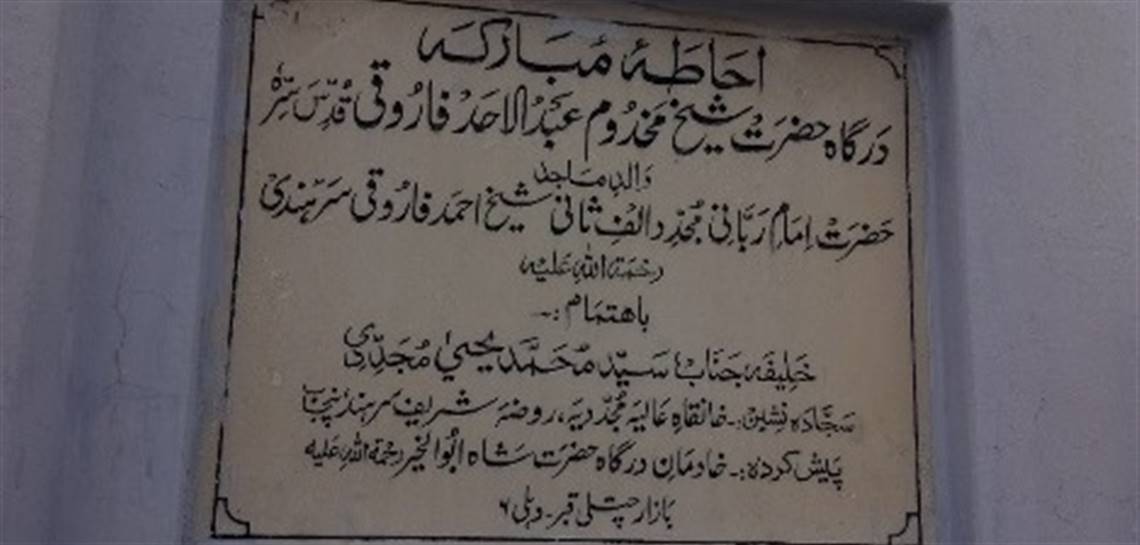 احاطۂ مبارکہ
درگاہ حضرت شیخ مخدوم عبدالاحد فاروقی قدس سرہ
والد ماجد
حضرت امام ربانی مجدد الف ثانی شیخ احمد فاروقی سرہندی
رحمة اللہ علیہ
باهتمام :۔
خلیفہ جناب سید محمد یحییٰ مجددی
سجادہ نشین :۔ خانقاہ عالیہ مجددیہ، روضہ شریف سرہند پنجاب
پیش کردہ :۔ خادمان درگاہ حضرت شاہ ابوالخیر رحمة اللہ علیہ
بازار چتلی قبر۔ دہلی ۶